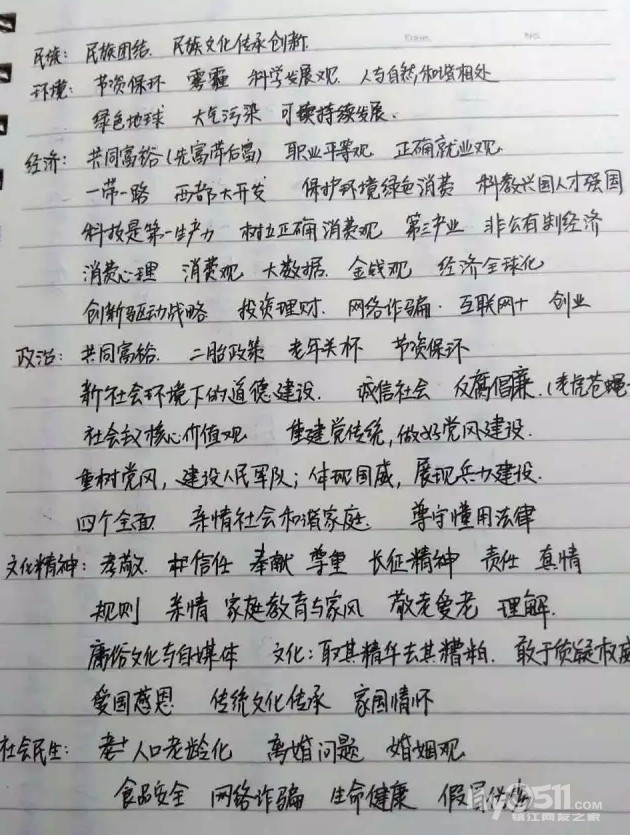 民族：民族团结. 民族文化传承创新.
环境：节资保环 雾霾 科学发展观. 人与自然,和谐相处
绿色地球 大气污染 可续持续发展.
经济：共同富裕(先富带后富) 职业平等观. 正确就业观.
一带一路 西部大开发 保护环境绿色消费 科教兴国人才强国
科技是第一生产力 树立正确消费观 第三产业 非公有制经济
消费心理 消费观 大数据. 金钱观 经济全球化
创新驱动战略 投资理财. 网络诈骗. 互联网+ 创业
政治：共同富裕. 二胎政策 老年关怀 节资保环
新社会环境下的道德建设. 诚信社会 反腐倡廉.(老虎苍蝇
社会主义核心价值观 重建党传统,做好党风建设.
重树党风, 建设人民军队; 体现国威, 展现兵力建设.
四个全面 亲情社会和谐家庭. 尊守懂用法律
文化精神：孝敬. 信任 奉献 尊重 长征精神 责任 真情
规则 亲情 家庭教育与家风 敬老爱老 理解.
庸俗文化与自媒体 文化：取其精华去其糟粕. 敢于质疑权威
爱国感恩 传统文化传承 家国情怀
社会民生： 人口老龄化 离婚问题 婚姻观
食品安全 网络诈骗 生命健康 假冒伪劣
hy0511.com
镇江网友之家